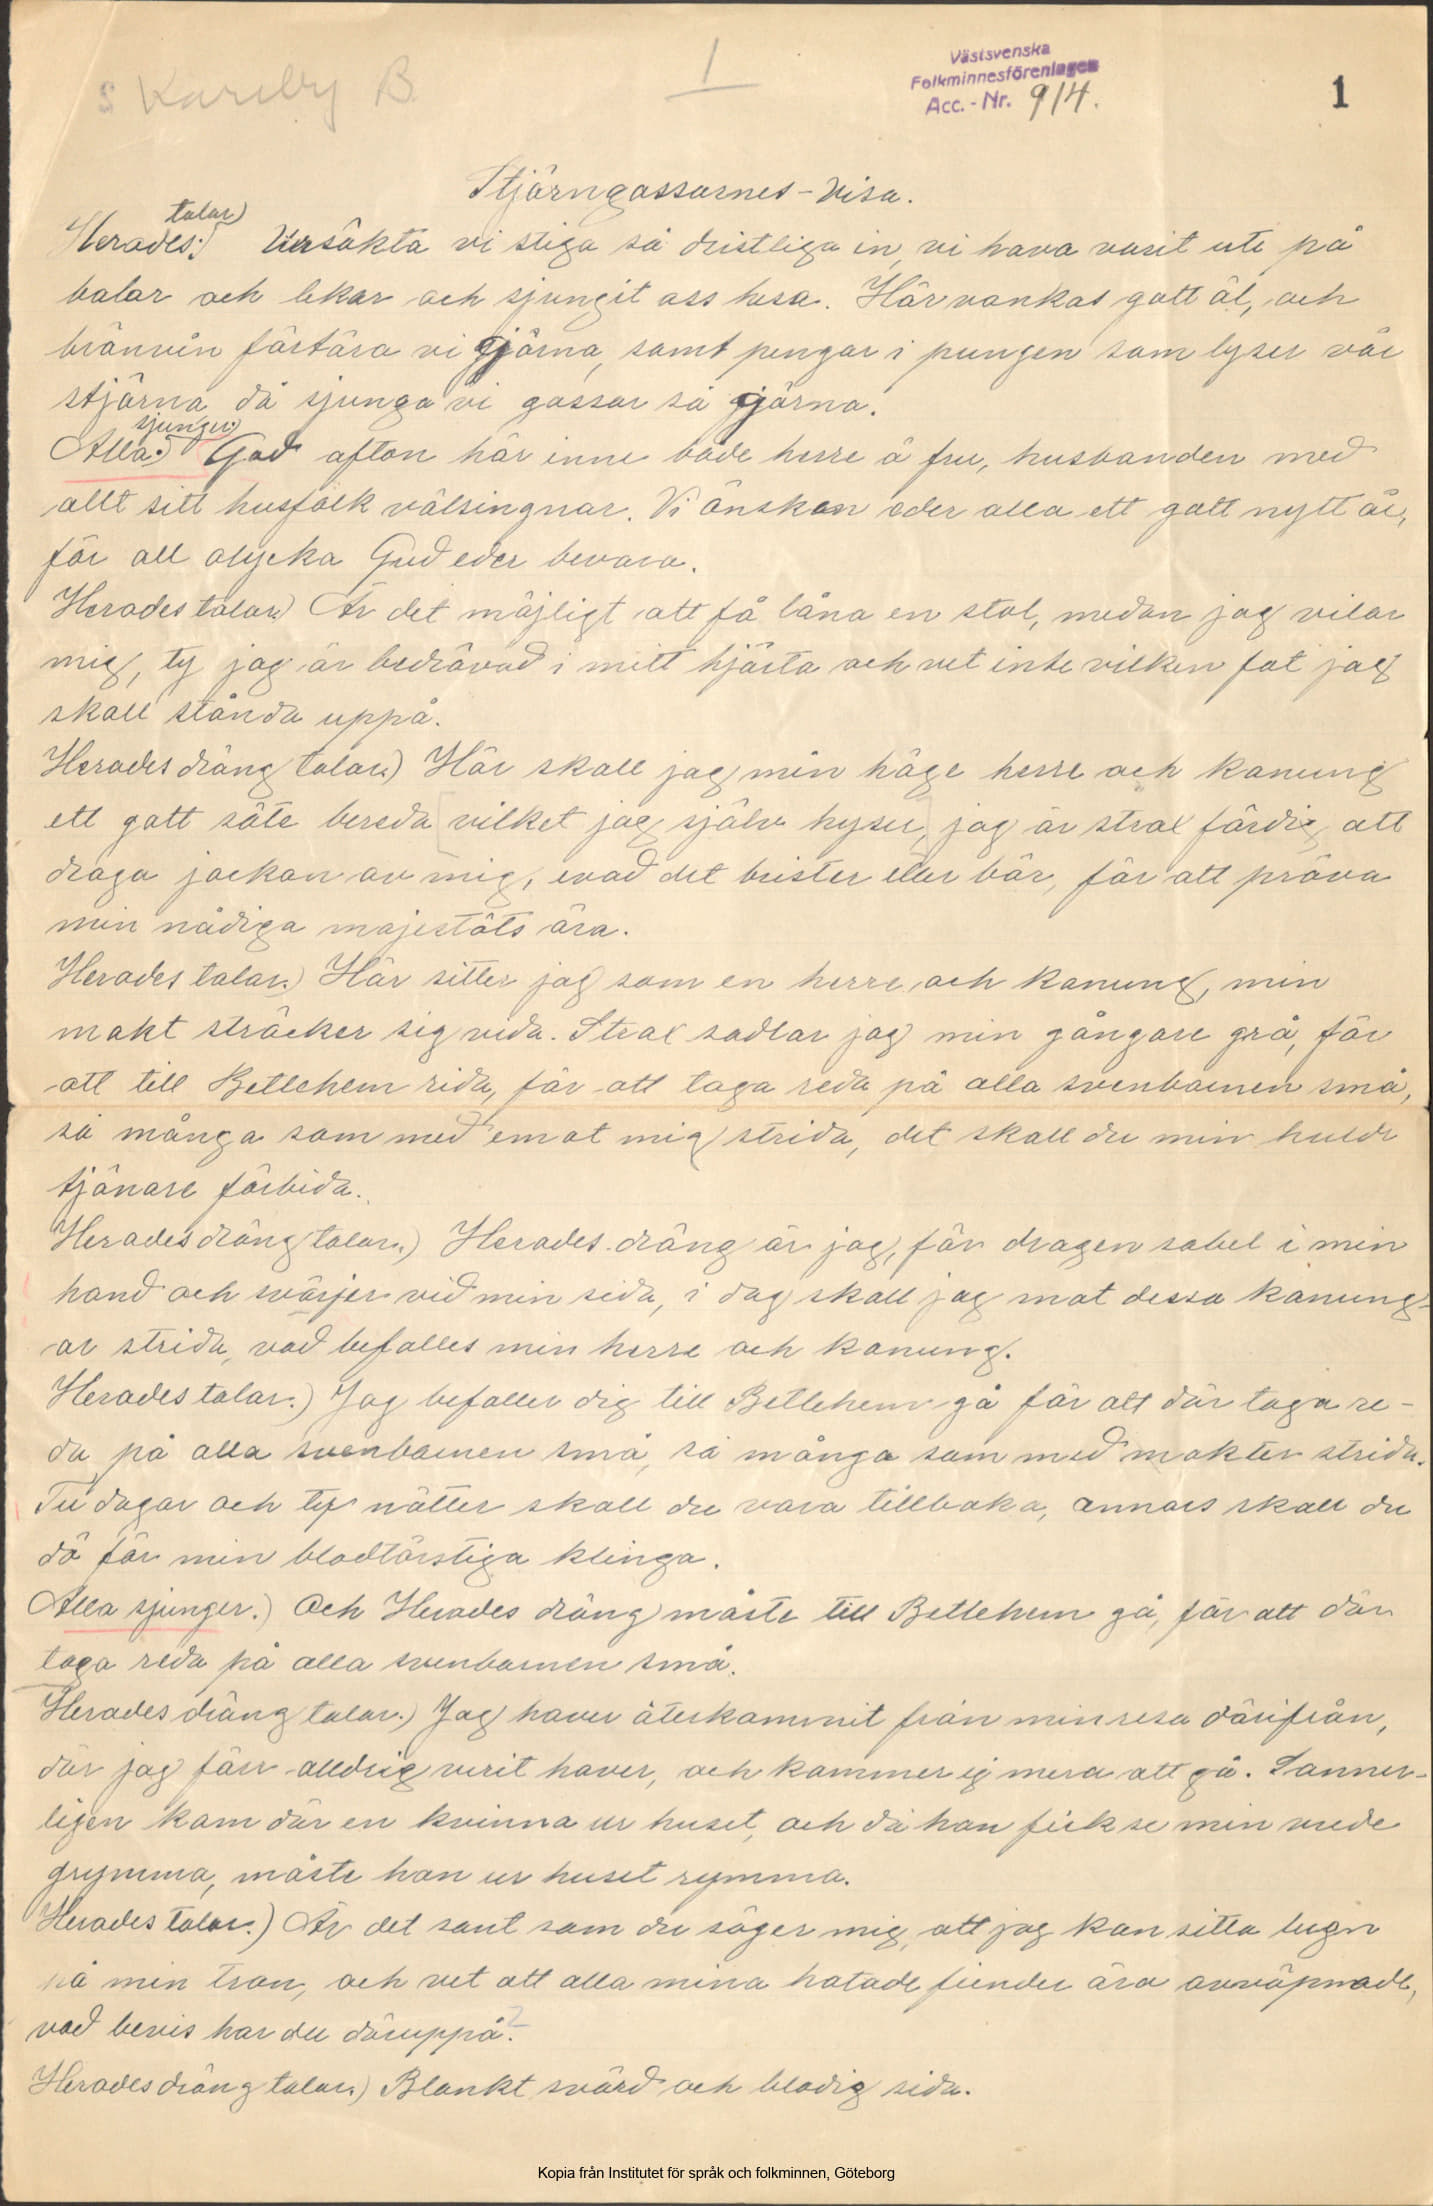 s Kareby B.
1
Västsvenska
Folkminnesföreningen
Acc. - Nr. 914.
1
Stjärngossarnes-Visa.
talar)
Herodes:) Ursäkta vi stiga så dristliga in, vi hava varit ute på
balar och lekar och sjungit oss hesa. Här vankas gott öl, och
bränvin förtära vi gjärna, samt pengar i pungen som lyser vår
stjärna då sjunga vi gossar så gjärna.
sjunger:)
Alla:) God afton här inne både herre å fru, husbonden med
allt sitt husfolk välsingnar. Vi önskan eder alla ett gott nytt år,
för all olycka Gud eder bevara.
Herodes talar:) Är det möjligt att få låna en stol, medan jag vilar
mig, ty jag är bedrövad i mitt hjärta och vet inte vilken fot jag
skall stånda uppå.
Herodes dräng talar:) Här skall jag min höge herre och konung
ett gott säte bereda vilket jag själv hyser, jag är strax färdig att
draga jackan av mig, evad det brister eller bär, för att pröva
min nådiga majestäts ära.
Herodes talar:) Här sitter jag som en herre och konung, min
makt sträcker sig vida. Strax sadlar jag min gångare grå, för
att till Betlehem rida, för att taga reda på alla svenbarnen små,
så många som med emot mig strida, det skall du min hulde
tjänare förbida.
Herodes dräng talar:) Herodes dräng är jag, för dragen sabel i min
hand och svärjer vid min sida, i dag skall jag mot dessa konung-
ar strida, vad befalles min herre och konung.
Herodes talar:) Jag befaller dig till Betlehem gå för att där taga re-
da på alla svenbarnen små, så många som med makten strida.
Tu dagar och ty nätter skall du vara tillbaka, annars skall du
dö för min blodtörstiga klinga.
Alla sjunger:) Och Herodes dräng måste till Betlehem gå, för att där
taga reda på alla svenbarnen små.
Herodes dräng talar:) Jag haver återkommit från min resa därifrån,
där jag förr alldrig verit haver, och kommer ej mera att gå. Sanner-
ligen kom där en kvinna ur huset, och då hon fick se min vrede
grymma, måste hon ur huset rymma.
Herodes talar:) Är det sant som du säger mig, att jag kan sitta lugn
på min tron, och vet att alla mina hatade fiender äro avväpnade,
vad bevis har du däruppå?
Herodes dräng talar:) Blankt svärd och blodig sida.
Kopia från Institutet för språk och folkminnen, Göteborg